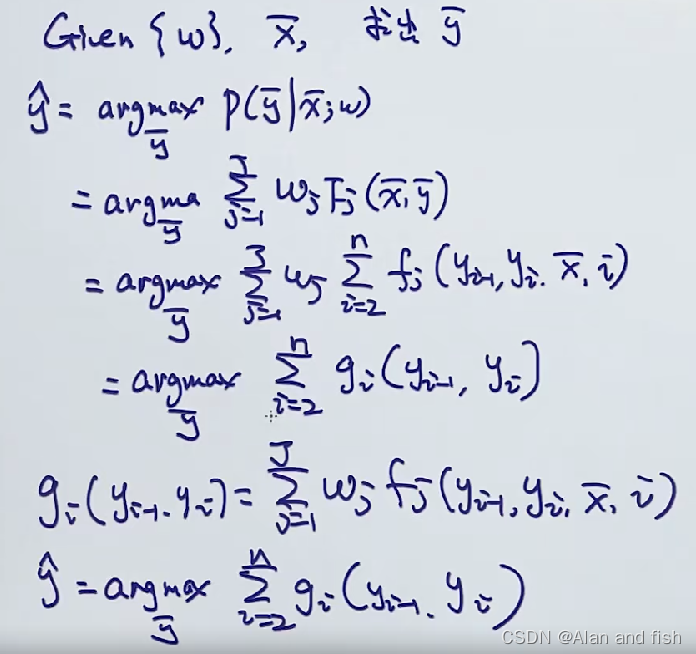 Given {w}, x̅, 求出 y̅
ŷ = argmax_y̅ P(y̅|x̅;w)
= argma_y̅ Σ_{j=1}^{J} w_j F_j (x̅,y̅)
= argmax_y̅ Σ_{j=1}^{J} w_j Σ_{i=2}^{n} f_j (y_{i-1}, y_i, x̅, i)
= argmax_y̅ Σ_{i=2}^{n} g_i (y_{i-1}, y_i)
g_i (y_{i-1}, y_i) = Σ_{j=1}^{J} w_j f_j (y_{i-1}, y_i, x̅, i)
ŷ = argmax_y̅ Σ_{i=2}^{n} g_i (y_{i-1}, y_i)
CSDN @Alan and fish